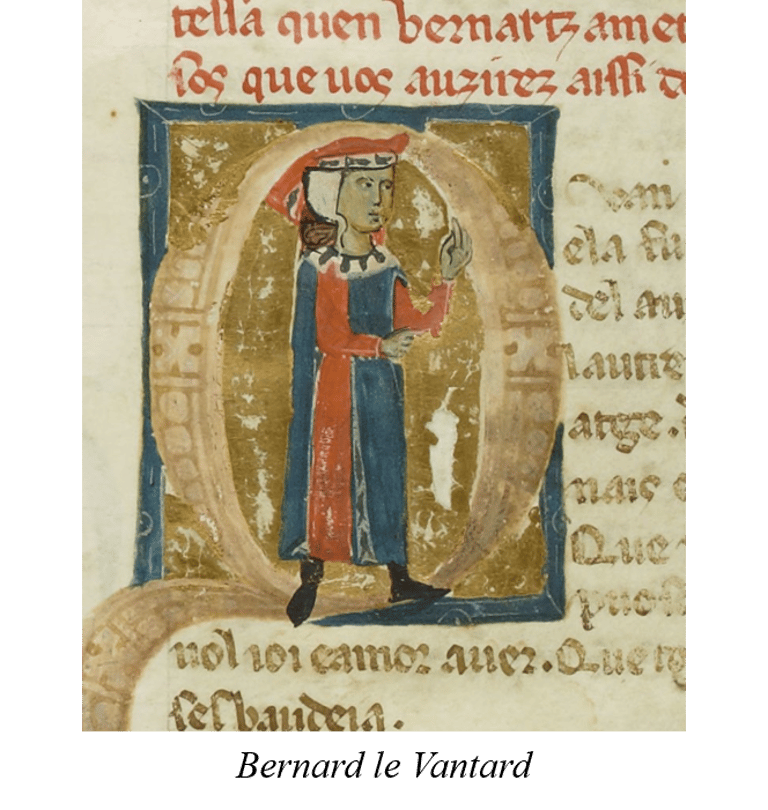 tella quen bernartz amet
sos que uos auzirez aissi de
ela fu
del au
lautre
atge.
nais
Que
nol ioi eamor auer. Que
sesbaudeia.
Bernard le Vantard